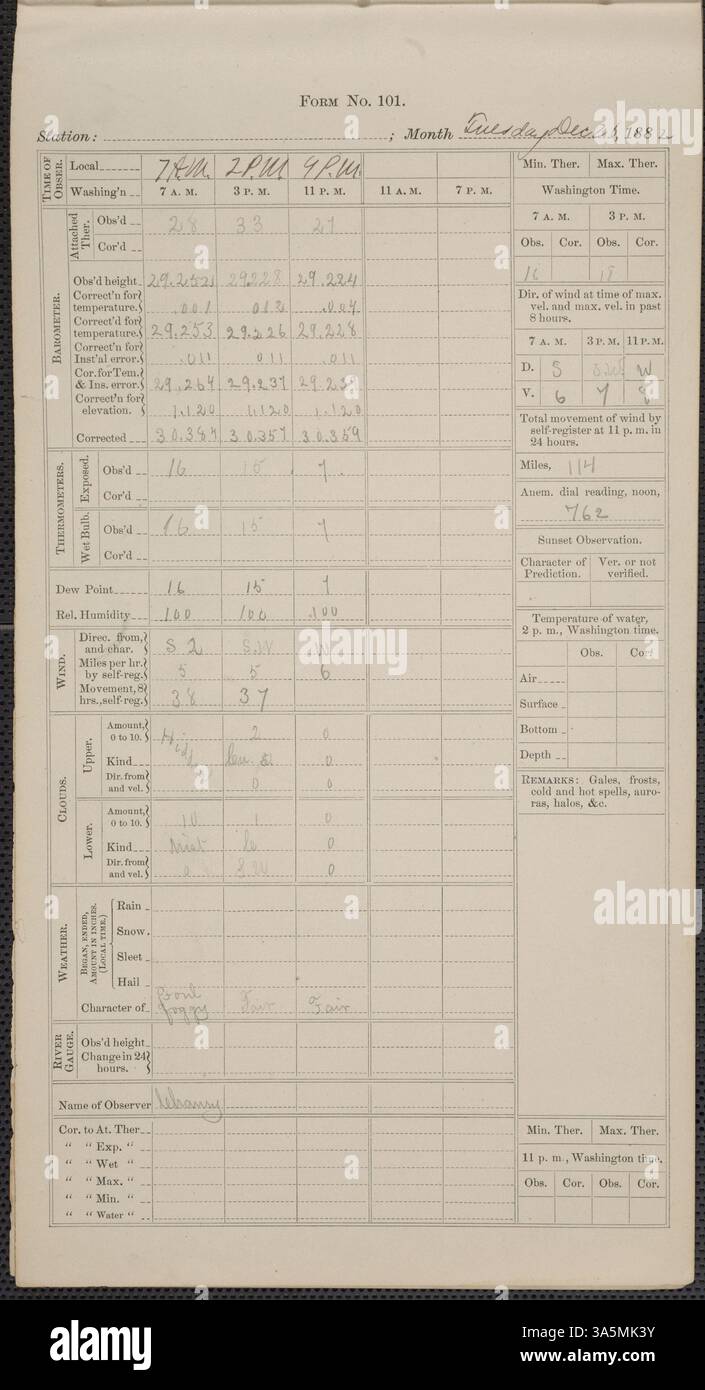 FORM NO. 101.
Station: ; Month Tuesday Dec. , 188
TIME OF OBSER.
Local 7 A.M. 2 P.M. 9 P.M.
Washing'n 7 A. M. 3 P. M. 11 P. M. 11 A. M. 7 P. M.
BAROMETER.
Attached Ther.
Obs'd 28 33 27
Cor'd
Obs'd height 29.252 29.228 29.224
Correct'n for temperature. .001 .012 .004
Correct'd for temperature. 29.253 29.226 29.228
Correct'n for Inst'al error. .011 .011 .011
Cor. for Tem. & Ins. error. 29.264 29.237 29.239
Correct'n for elevation. 1.120 1.120 1.120
Corrected 30.384 30.357 30.359
THERMOMETERS.
Exposed.
Obs'd 16 15 7
Cor'd
Wet Bulb.
Obs'd 16 15 7
Cor'd
Dew Point 16 15 7
Rel. Humidity 100 100 100
WIND.
Direc. from, and char. S 2 S.W W
Miles per hr. by self-reg. 5 5 6
Movement, 8 hrs., self-reg. 38 37
CLOUDS.
Upper.
Amount, 0 to 10. 2 0
Kind 0
Dir. from and vel. 0 0
Lower.
Amount, 0 to 10. 10 1 0
Kind 0
Dir. from and vel. 0 SW 0
WEATHER.
BEGAN, ENDED, AMOUNT IN INCHES. (LOCAL TIME.)
Rain
Snow.
Sleet
Hail
Character of Foul foggy Fair Fair
RIVER GAUGE.
Obs'd height
Change in 24 hours.
Name of Observer
Cor. to At. Ther.
" " Exp. "
" " Wet "
" " Max. "
" " Min. "
" " Water "
Min. Ther. Max. Ther.
Washington Time.
7 A. M. 3 P. M.
Obs. Cor. Obs. Cor.
16 18
Dir. of wind at time of max. vel. and max. vel. in past 8 hours.
7 A. M. 3 P.M. 11 P.M.
D. S SW W
V. 6 7 8
Total movement of wind by self-register at 11 p. m. in 24 hours.
Miles, 114
Anem. dial reading, noon,
762
Sunset Observation.
Character of Prediction. Ver. or not verified.
Temperature of water, 2 p. m., Washington time.
Obs. Cor.
Air
Surface
Bottom
Depth
REMARKS: Gales, frosts, cold and hot spells, auroras, halos, &c.
Min. Ther. Max. Ther.
11 p. m., Washington time.
Obs. Cor. Obs. Cor.
alamy
Image ID: 3A5MK3Y
www.alamy.com